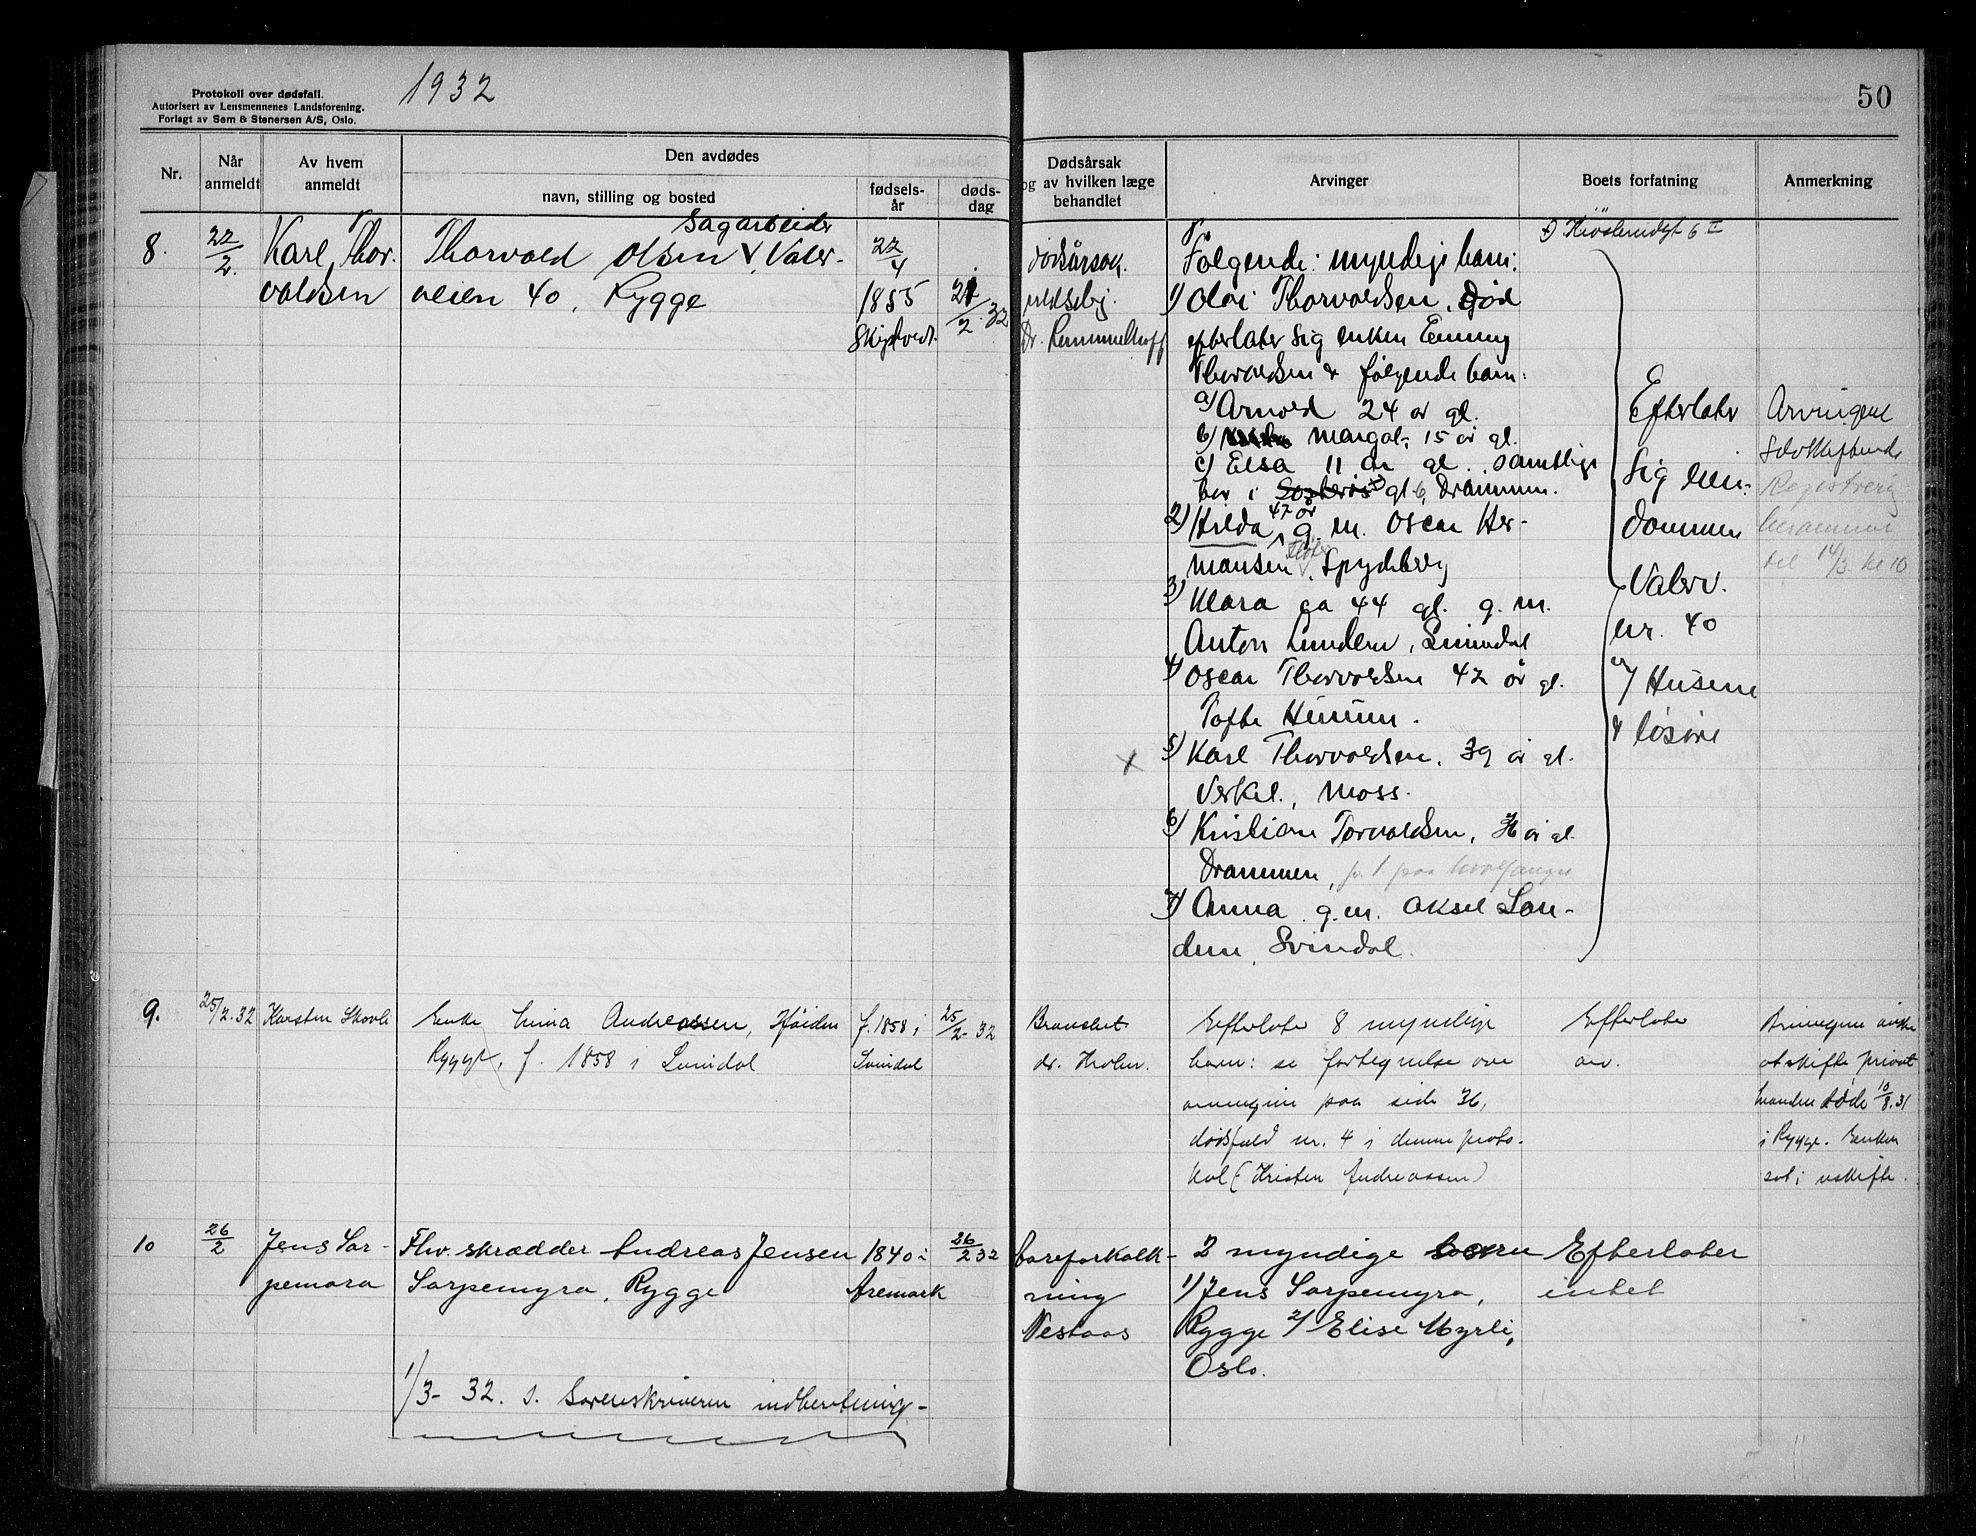 Protokoll over dødsfall.
Autorisert av Lensmennenes Landsforening.
Forlagt av Sem & Stenersen A/S, Oslo.
1932
50
Nr.
Når anmeldt
Av hvem anmeldt
Den avdødes
navn, stilling og bosted
fødsels-år
døds-dag
Dødsårsak og av hvilken læge behandlet
Arvinger
Boets forfatning
Anmerkning
8.
22/2.
Karl Thor-
valdsen
Sagarbeider
Thorvald Olsen V. Valer-
veien 40, Rygge
22/4
1855
Skiptvedt.
21/2.32
Dødsårsak.
Dr. Remmelhoff
Følgende myndige barn:
1) Olai Thorvaldsen, Død
efterlater sig enken Emmy
Thorvaldsen & følgende barn:
a) Arnold 24 år gl.
b) Margot, 15 år gl.
c) Elsa 11 år gl. samtlige
bor i gt 6, Drammen.
2) Hilda 47 år g. m. Oscar Her-
mansen, Spydeberg
3) Klara ca 44 gl. g. m.
Anton Lunden, Svindal
4) Oscar Thorvaldsen 42 år gl.
Tofte Hurum.
5) Karl Thorvaldsen, 39 år gl.
Verket, Moss.
6) Kristian Torvaldsen, år gl.
Drammen,
7) Anna g.m. Aksel Lun-
den, Svindal.
Efterlater
sig eien-
dommen
Valerv.
nr. 40
a/ Husene
& løsøre
Arvingene
selvskiftende
Registrering
berammet
til 14/3. kl 10
9.
25/2.32
Karsten Skovli
Enke Lina Andreassen, Høiden
Rygge, f. 1858 i Svindal
f. 1858 i
Svindal
25/2 32
dr. Holm.
Efterlater 8 myndige
barn: se fortegnelse over
arvingene paa side 36,
dødsfald nr. 4 i denne proto-
kol (Kristen Andreassen)
Efterlater
arv.
Arvingene ønsker
at skifte privat
manden døde 10/8.31
i Rygge. Enken
sat i uskifte.
10
26/2
Jens Sar-
pemara
Fhv. skrædder Andreas Jensen
Sarpemyra, Rygge
1840 i
Aremark
26/2 32
Aareforkalk-
ning
Nestaas
2 myndige barn
1) Jens Sarpemyra,
Rygge 2/ Elise Myrli,
Oslo.
Efterlater
intet
1/3- 32. s. Sorenskriveren indberetning.-